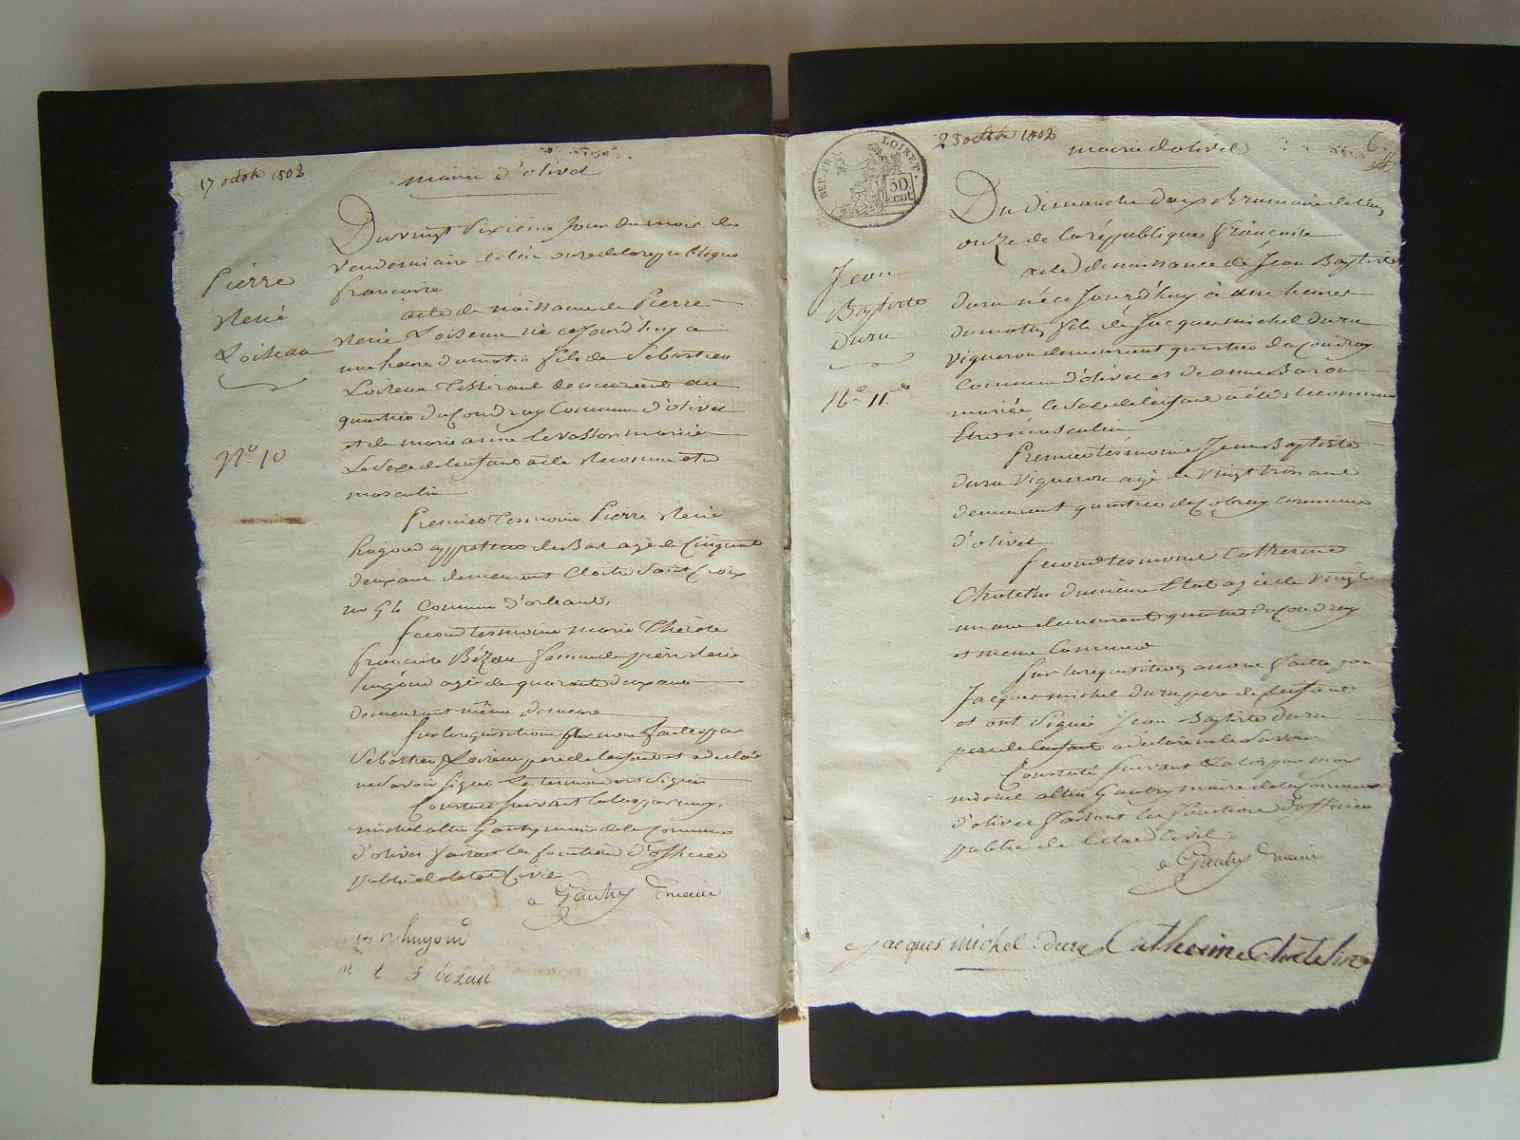 17 octob 1802
mairie d'olivet
Pierre
René
Loiseau
N.° 10
Du vingt sixieme jour du mois de
Vendemiaire l'an onze de la republique
françoise
acte de naissance de Pierre
René Loiseau né cejourd'huy a
une heure du matin fils de Sebastien
Loiseau Tisserant demeurant au
quartier du Coudray Commune d'olivet
et de marie anne levasson mariée
Le Sexe de lenfant a été reconnu etre
masculin
Premier tesmoin Pierre René
hugoud appreteur de Bas agé de Cinquante
deux ans demeurant Cloitre Saint Croix
no Commune d'orleans,
second tesmoine marie Therese
françoise Bézau femme de pierre René
hugoud agée de quarante deux ans
demeurant même demeure
sur la requisition a nous faite par
Sebastien Loiseau pere de lenfant et a declaré
ne savoir signer Les temoins ont signés
Constaté suivant la loy par moy,
michel altin Gautry maire de la Commune
d'olivet faisant les fonctions d'officier
public de letat Civil
a Gautry maire
hugoud
m t f bézau
DEP. DU LOIRET.
50
cent
23 octob 1802
mairie d'olivet
6
Jean
Baptiste
Duru
N.° 11.
Du dimanche deux Brumaire l'an
onze de la république française
acte de naissance de Jean Baptiste
duru né ce jourd'huy à une heures
du matin fils de Jacque michel duru
vigneron demeurant quartier du Coudray
Commune d'olivet et de anne Baron
mariée le Sexe de lenfant a été reconnu
Etre masculin
Premier tésmoin Jean Baptiste
duru vigneron agé de vingt trois ans
demeurant quartier de commune
d'olivet
second tesmoine Catherine
Chatelin du même Etat agée de vingt
un ans demeurant quartier du Coudray
et meme Commune
sur la requisition a nous faitte par
Jacque michel duru pere de lenfant
et ont signé Jean Baptiste duru
pere de lenfant a declaré ne Savoir
Constaté suivant la loy par moy
michel altin Gautry maire de la Commune
d'olivet faisant les fonctions d'officier
public de letat Civil
a Gautry maire
Jacques michel duru Catherine Chatelin